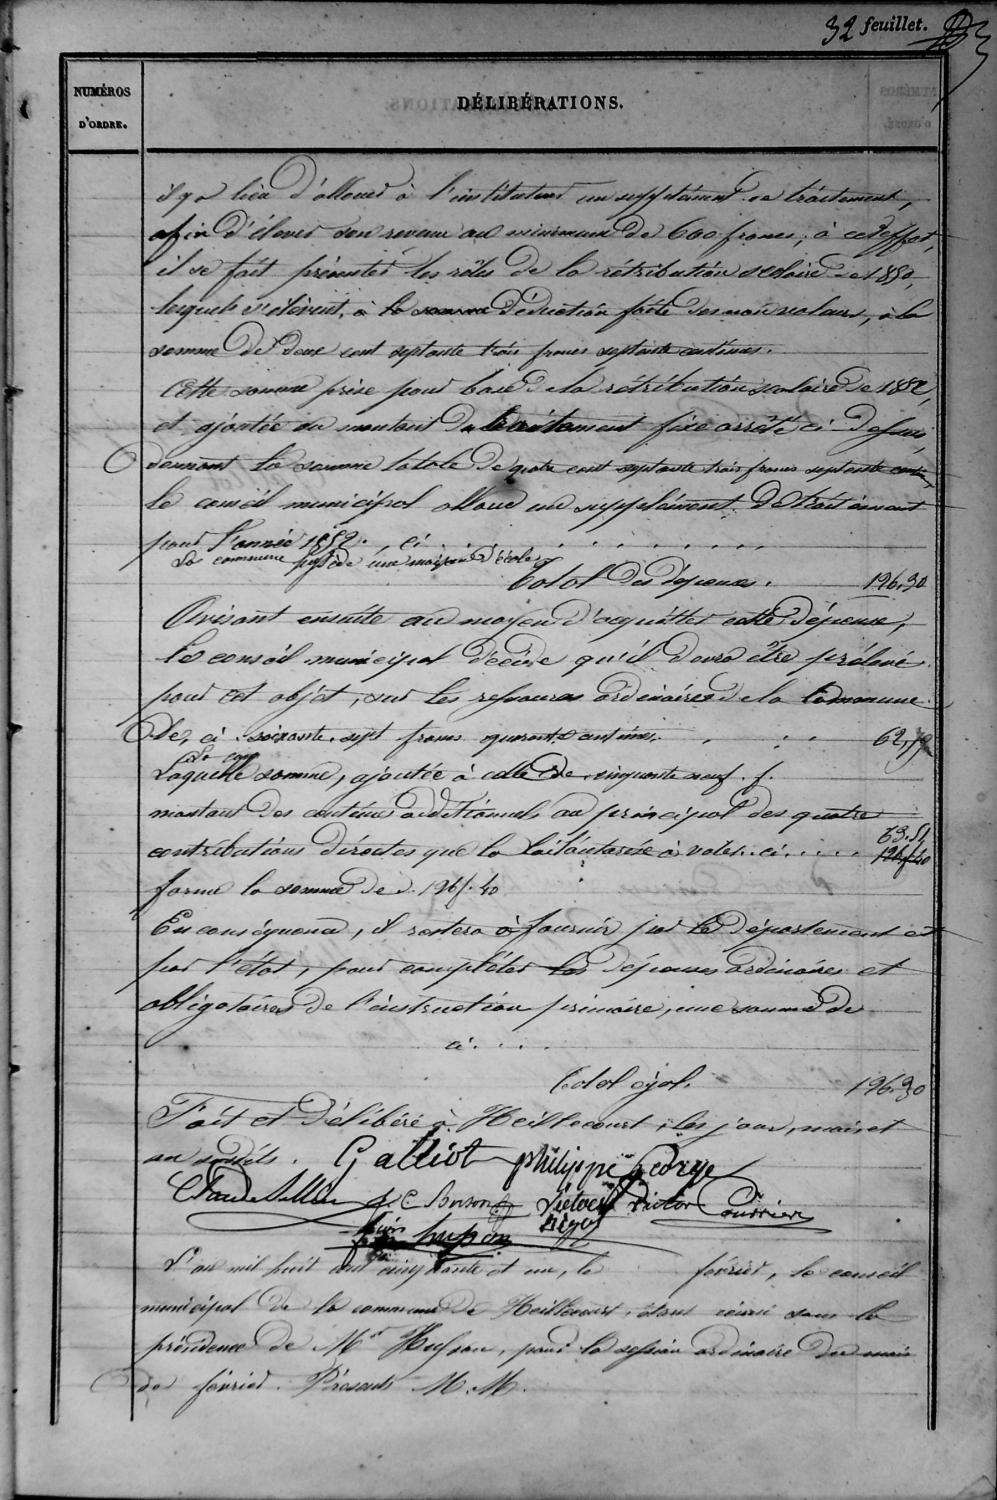 32 feuillet.
NUMÉROS
D'ORDRE.
DÉLIBÉRATIONS.
il y a lieu d'allouer à l'instituteur un supplément de traitement,
afin d'élever son revenu au minimum de 600 francs, à cet effet,
il se fait présenter les rôles de la rétribution scolaire de 1850,
lesquels s'élèvent, à la somme déduction faite des non valeurs, à la
somme de deux cent septante trois francs septante centimes.
Cette somme prise pour base de la rétribution scolaire de 1852,
et ajoutée au montant du traitement fixe arrêté ci-dessus,
donnant la somme totale de quatre cent septante trois francs septante
le conseil municipal alloue un supplément de traitement
pour l'année 1852 . ci . . . . . . . .
La commune possède une maison d'école
Total des dépenses. 196.30
Avisant ensuite au moyen d'acquitter cette dépense,
le conseil municipal décide qu'il devra être prélevé
pour cet objet, sur les ressources ordinaires de la commune
de, ci . soixante sept francs quarante centimes.
Laquelle somme, ajoutée à celle de cinquante neuf f.
montant des centimes additionnels au principal des quatre
63.51
contributions directes que la loi l'autorise à voter. ci . . . . 126f 40
forme la somme de . 126f. 40
En conséquence, il restera à fournir par le département et
par l'état, pour compléter les dépenses ordinaires et
obligatoires de l'instruction primaire, une somme de
ci . . . .
Total égal. 196.30
Fait et délibéré à Heillecourt, les jour, mois et
an susdits. Galliot philippe George
J. C. Victor Courrier
huson
L'an mil huit cent cinquante et un, le février, le conseil
municipal de la commune de Heillecourt, étant réuni sous la
présidence de Mr Husson, pour la session ordinaire du mois
de février. Présents M. M.